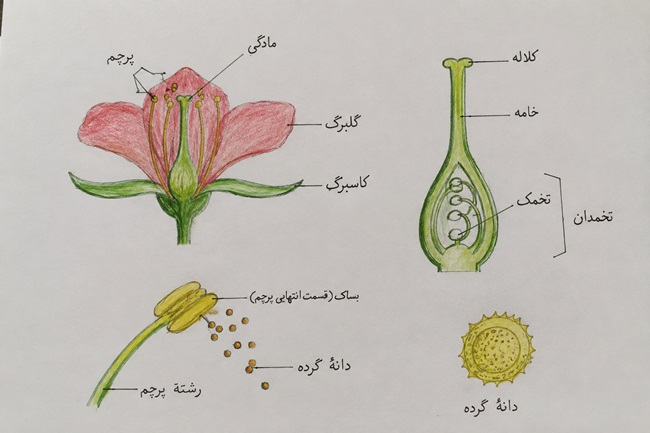 پرچم
مادگی
گلبرگ
کاسبرگ
کلاله
خامه
تخمک
تخمدان
بساک (قسمت انتهایی پرچم)
دانهٔ گرده
رشتهٔ پرچم
دانهٔ گرده